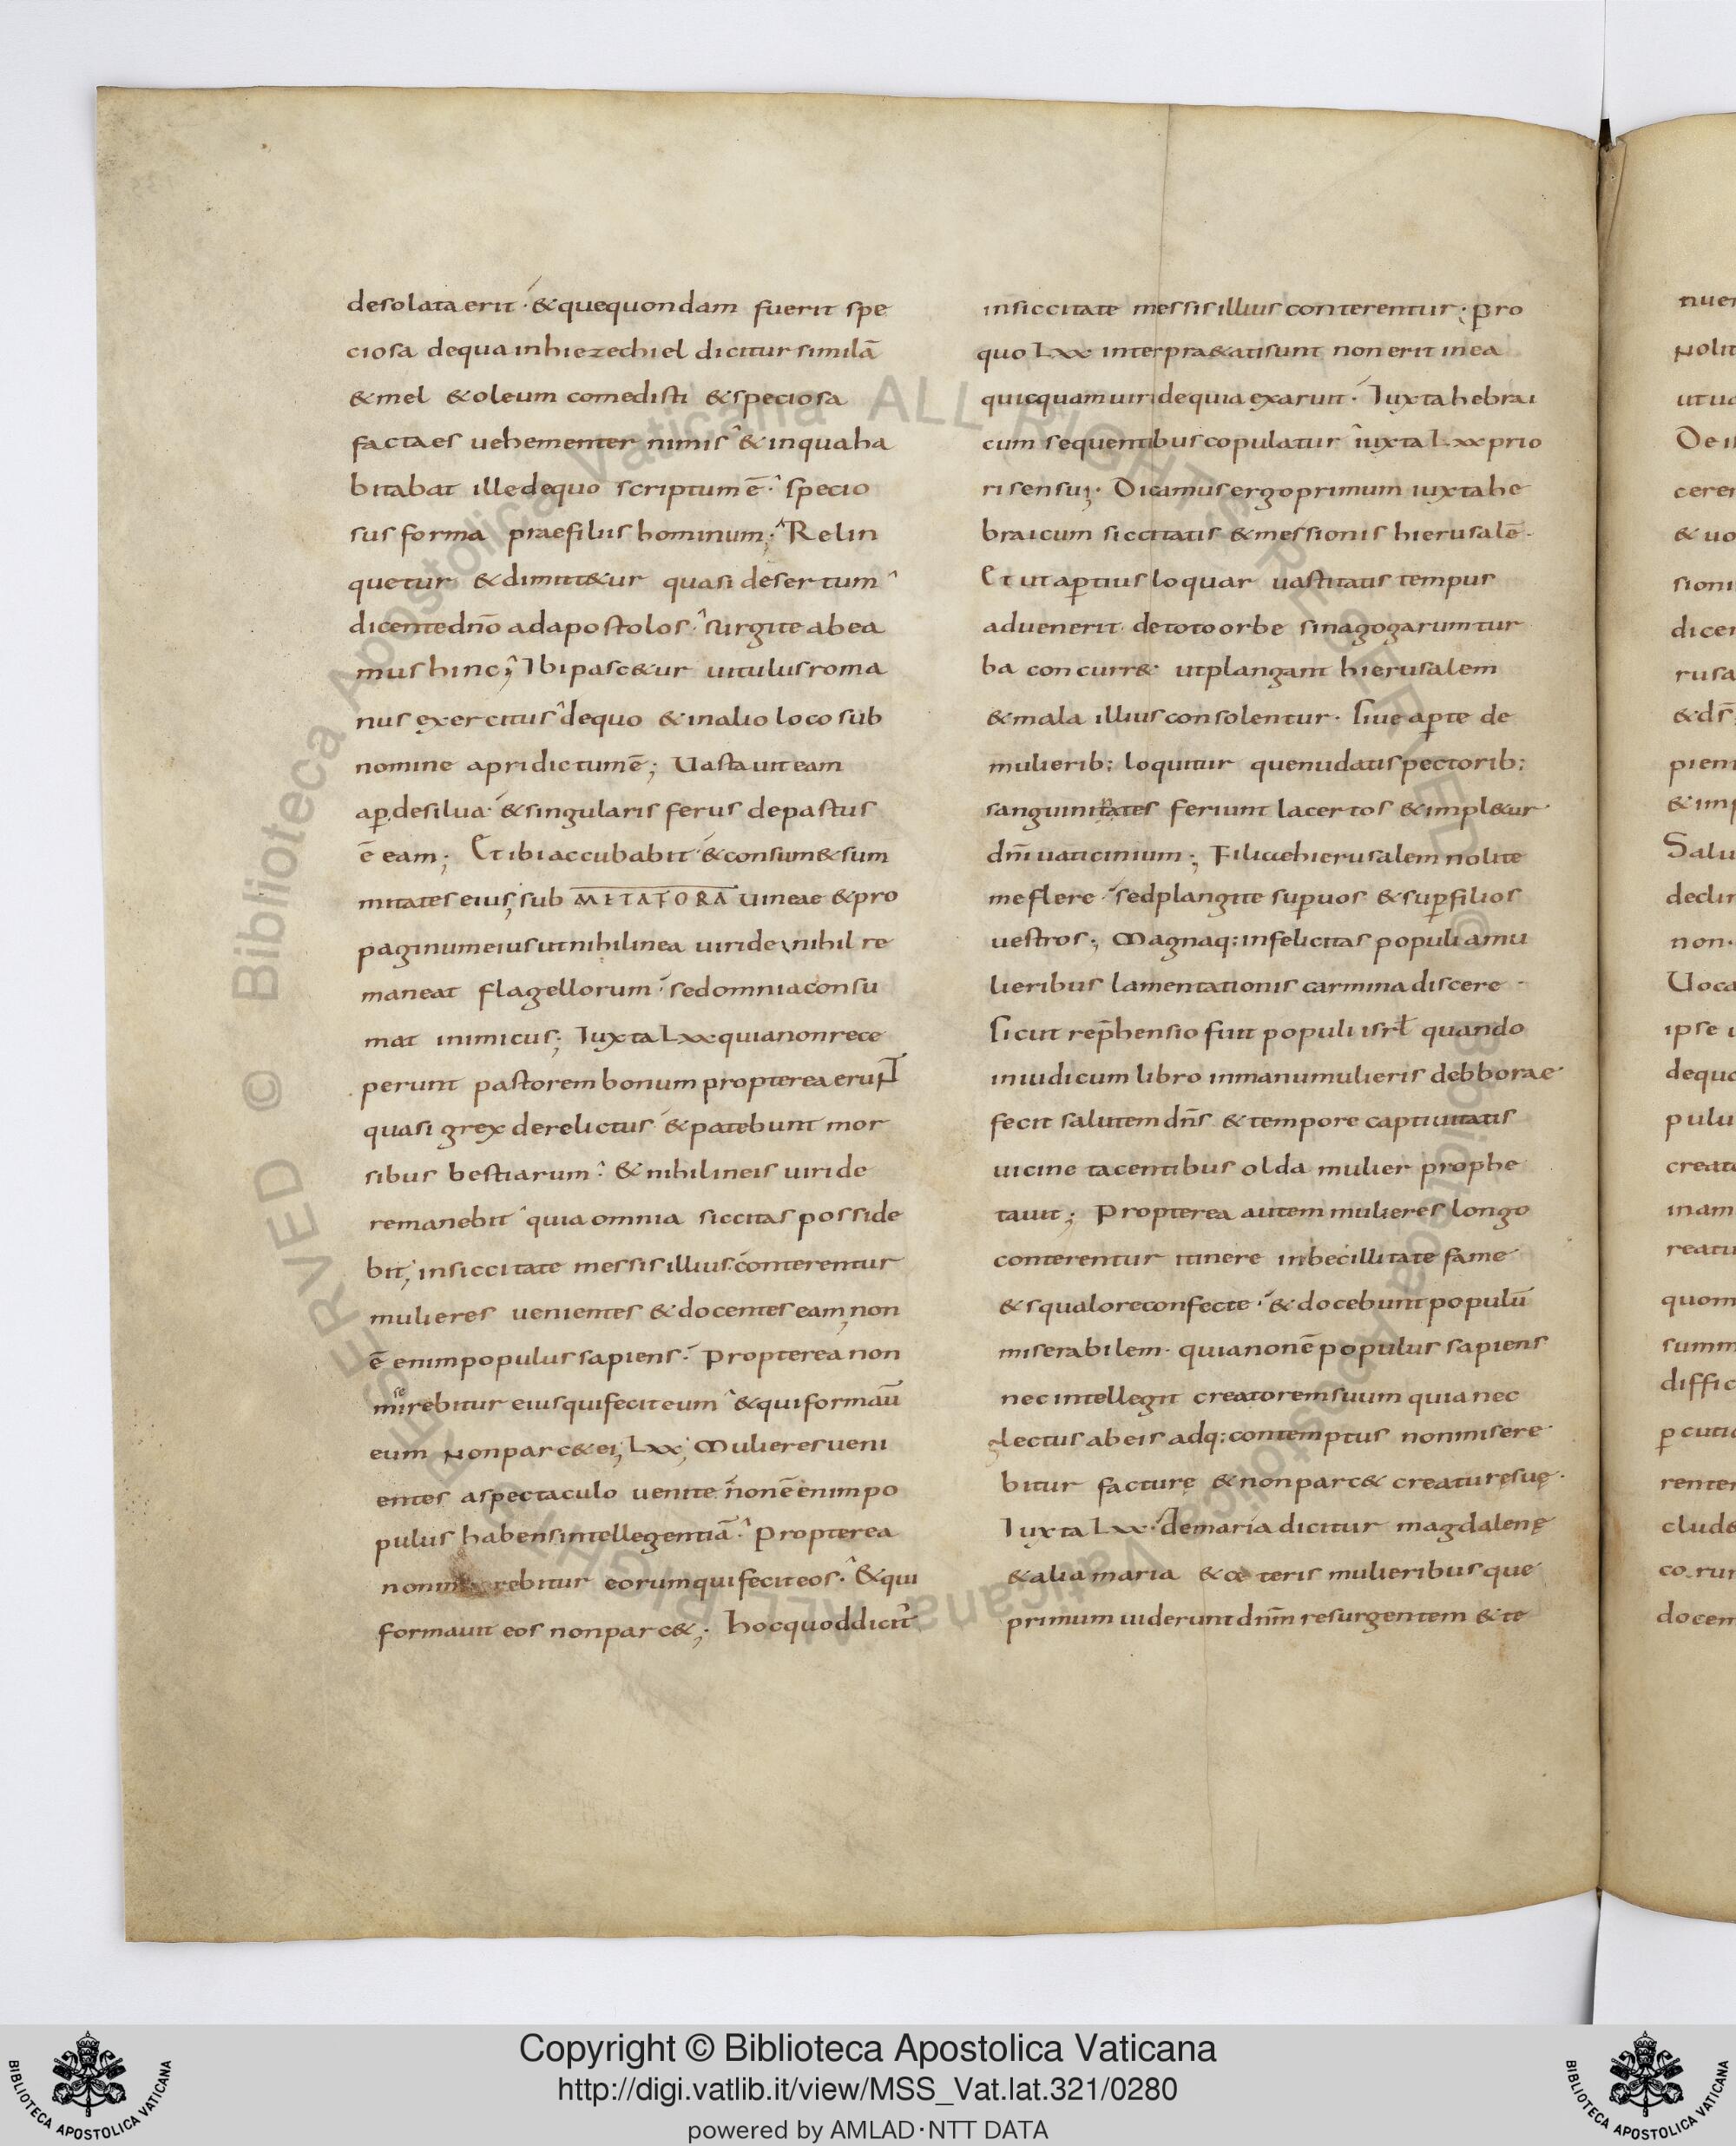 desolata erit · & que quondam fuerit spe
ciosa de qua in hiezechiel dicitur similā
& mel & oleum comedisti & speciosa
facta es uehementer nimis & in qua ha
bitabat ille de quo scriptum ē · specio
sus forma prae filiis hominum ; Relin
quetur & dimittetur quasi desertum
dicente dn̄o ad apostolos · surgite abea
mus hinc ; Ibi pasc&ur uitulus roma
nus exercitus de quo & in alio loco sub
nomine apri dictum ē ; Uastauit eam
aꝑ de silua · & singularis ferus depastus
ē eam ; Et ibi accubabit · & consum& sum
mitates eius ; sub METAFORA uineae & pro
paginum eius ut nihil in ea uiride nihil re
maneat flagellorum · sed omnia consu
mat inimicus ; Iuxta Lxx quia non rece
perunt pastorem bonum propterea erunt
quasi grex derelictus & patebunt mor
sibus bestiarum · & nihil in eis uiride
remanebit quia omnia siccitas posside
bit ; in siccitate messis illius conterentur
mulieres uenientes & docentes eam ; non
ē enim populus sapiens · Propterea non
mirebitur eius qui fecit eum & qui formaū
se
eum Non parc& ei ; Lxx ; Mulieres ueni
entes a spectaculo uenite non ē enim po
pulus habens intellegentiā · Propterea
non rebitur eorum qui fecit eos · & qui
formauit eos non parc& ; hoc quod dicit
in siccitate messis illius conterentur · pro
quo Lxx interpraetati sunt non erit in ea
quicquam uiride quia exaruit · Iuxta hebrai
cum sequentibus copulatur iuxta Lxx prio
ri sensui · Dicamus ergo primum iuxta he
braicum siccitatis & messionis hierusalē ·
Et ut aꝑtius loquar uastitatis tempus
aduenerit de toto orbe sinagogarum tur
ba concurr& ut plangant hierusalem
& mala illius consolentur · Siue aꝑte de
mulierib; loquitur que nudatis pectorib;
feriunt lacertos & impl&ur
dn̄i uaticinium ; Filiae hierusalem nolite
me flere · sed plangite suꝑ uos & suꝑ filios
uestros ; Magnaq; infelicitas populi a mu
lieribus lamentationis carmina discere ·
Sicut rep̄hensio fuit populi isrł quando
in iudicum libro in manu mulieris debborae
fecit salutem dn̄s & tempore captiuitatis
uicine tacentibus olda mulier prophe
tauit ; Propterea autem mulieres longo
conterentur itinere inbecillitate fame
& squalore confecte · & docebunt populū
miserabilem · quia non ē populus sapiens
nec intellegit creatorem suum quia nec
glectus ab eis adq; contemptus non misere
bitur facturę & non parc& creaturę suę ·
Iuxta Lxx · de maria dicitur magdalenę
& alia maria & ceteris mulieribus que
primum uiderunt dn̄m resurgentem & te
nuer
Nolit
ut uo
De is
cerer
& uo
sioni
dicer
rusa
& ds̄
pien
& imp
Salu
declin
non ·
Uoca
ipse
dequo
pulu
creat
inam
reatu
quom
summ
diffic
ꝑ cuti
renter
clud&
docem
Copyright © Biblioteca Apostolica Vaticana
http://digi.vatlib.it/view/MSS_Vat.lat.321/0280
powered by AMLAD·NTT DATA
BIBLIOTECA APOSTOLICA VATICANA
BIBLIOTECA APOSTOLICA VATICANA
© Biblioteca Apostolica Vaticana ALL RIGHTS RESERVED © Biblioteca Apostolica Vaticana ALL RIGHTS RESERVED